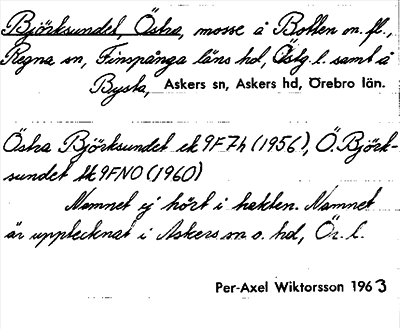 Björksundet, Östra, mosse å Botten m. fl.,
Regna sn, Finspånga läns hd, Östg l. samt å
Bysta, Askers sn, Askers hd, Örebro län.
Östra Björksundet ek 9F7h (1956), Ö. Björk-
sundet tk 9FNO (1960)
Namnet ej hört i trakten. Namnet
är upptecknat i Askers sn o. hd, Ör. l.
Per-Axel Wiktorsson 1963